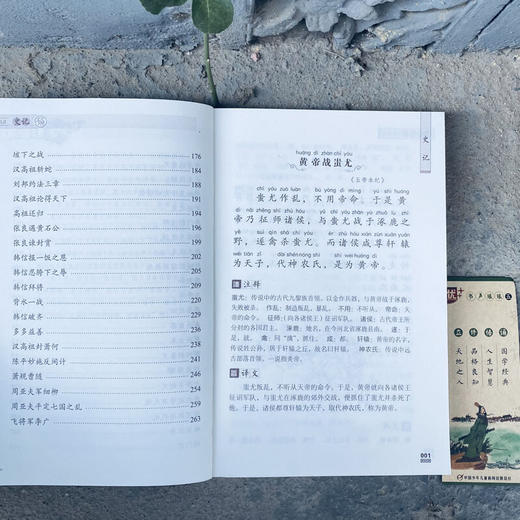 史记
垓下之战 176
汉高祖斩蛇
刘邦约法三章
汉高祖论得天下
高祖还归
张良遇黄石公
张良谏封赏
韩信报一饭之恩
韩信忍胯下之辱
韩信拜将
背水一战
韩信破齐
多多益善
汉高祖封萧何
陈平妙施反间计
萧规曹随
周亚夫军细柳
周亚夫平定七国之乱 259
飞将军李广 263
史记
huáng dì zhàn chī yóu
黄帝战蚩尤
《五帝本纪》
chī yóu zuò luàn bù yòng dì mìng yú shì huáng
蚩尤作乱，不用帝命。于是黄
dì nǎi zhēng shī zhū hóu yǔ chī yóu zhàn yú zhuō lù zhī
帝乃征师诸侯，与蚩尤战于涿鹿之
yě suì qín shā chī yóu ér zhū hóu xián zūn xuān yuán
野，遂禽杀蚩尤。而诸侯咸尊轩辕
wéi tiān zǐ dài shén nóng shì shì wéi huáng dì
为天子，代神农氏，是为黄帝。
注释
蚩尤：传说中的古代九黎族首领。以金作兵器，与黄帝战于涿鹿，
失败被杀。作乱：制造叛乱，暴乱。用：不听从。帝命：黄
帝的命令。征师：（向各诸侯王）征召军队。诸侯：古代帝王所
分封的各国君主。涿鹿：地名，在今河北省涿鹿县南。遂：于
是，就。禽：同“擒”，抓住。咸：都。轩辕：黄帝的名字，
传说姓公孙，居于轩辕之丘，故名曰轩辕。神农氏：传说中远
古部落首领，一说指炎帝。
译文
蚩尤叛乱，不听从天帝的命令。于是，黄帝就向各诸侯王
征召军队，与蚩尤在涿鹿的郊外交战，便抓住了蚩尤并杀死了
他。于是，诸侯都尊轩辕为天子，取代神农氏，称为黄帝。
001
书声琅琅
国学经典
人生智慧
品格良知
天地之人
中国少年儿童新闻出版总社